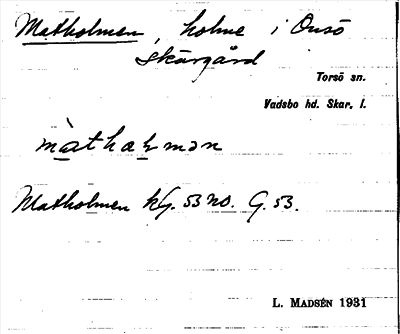 Matholmen, holme i Onsö
skärgård
Torsö sn.
Vadsbo hd. Skar. l.
màthaɫmən
Matholmen kG. 53 no. G. 53.
L. MADSÉN 1931